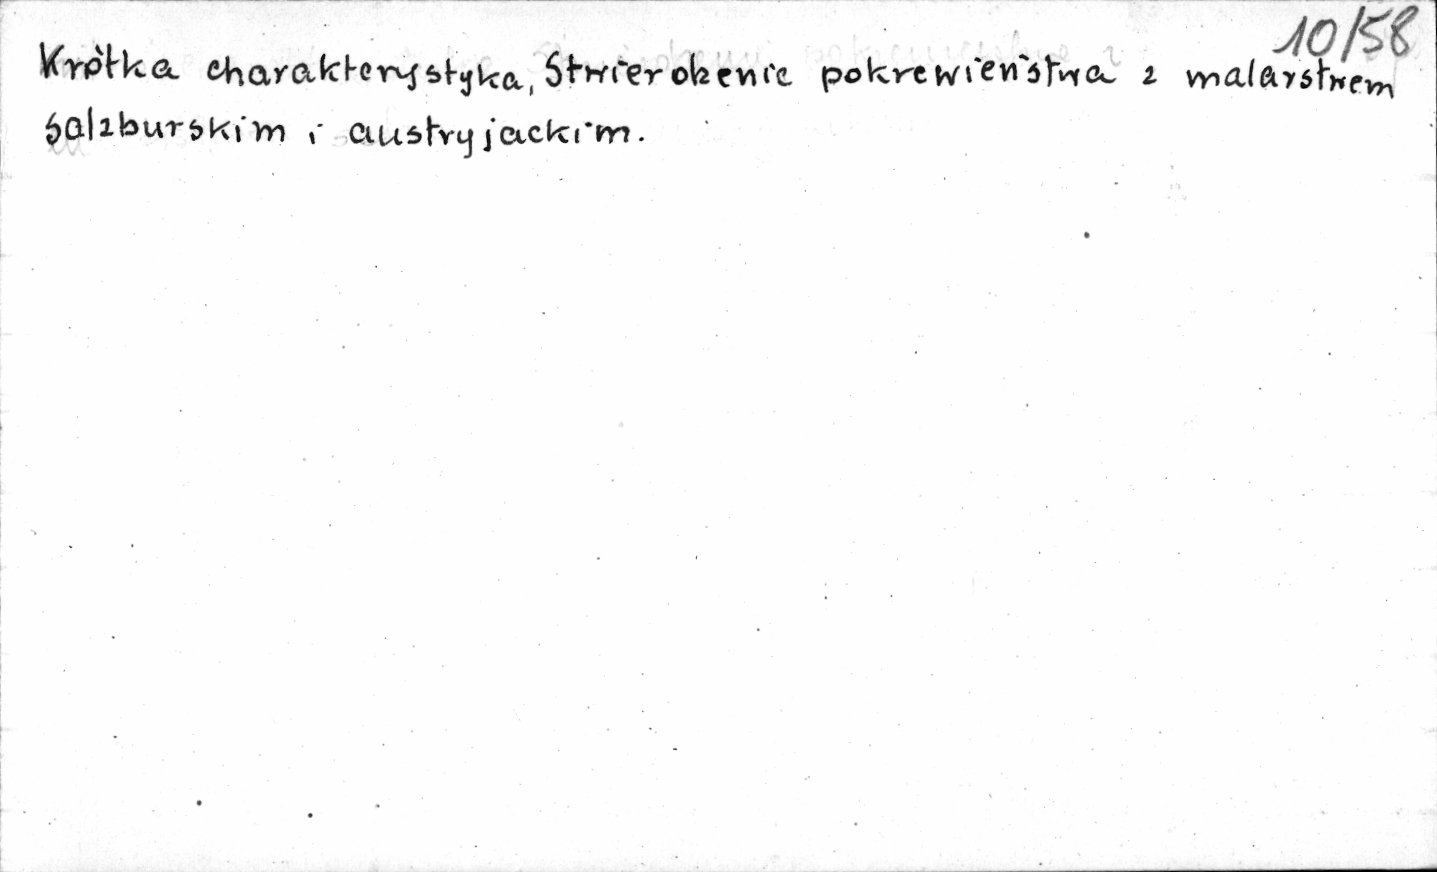 10/58
Krótka charakterysstyka, Stwierdzenie pokrewieństwa z malarstwem
salzburskim i austryjackim.